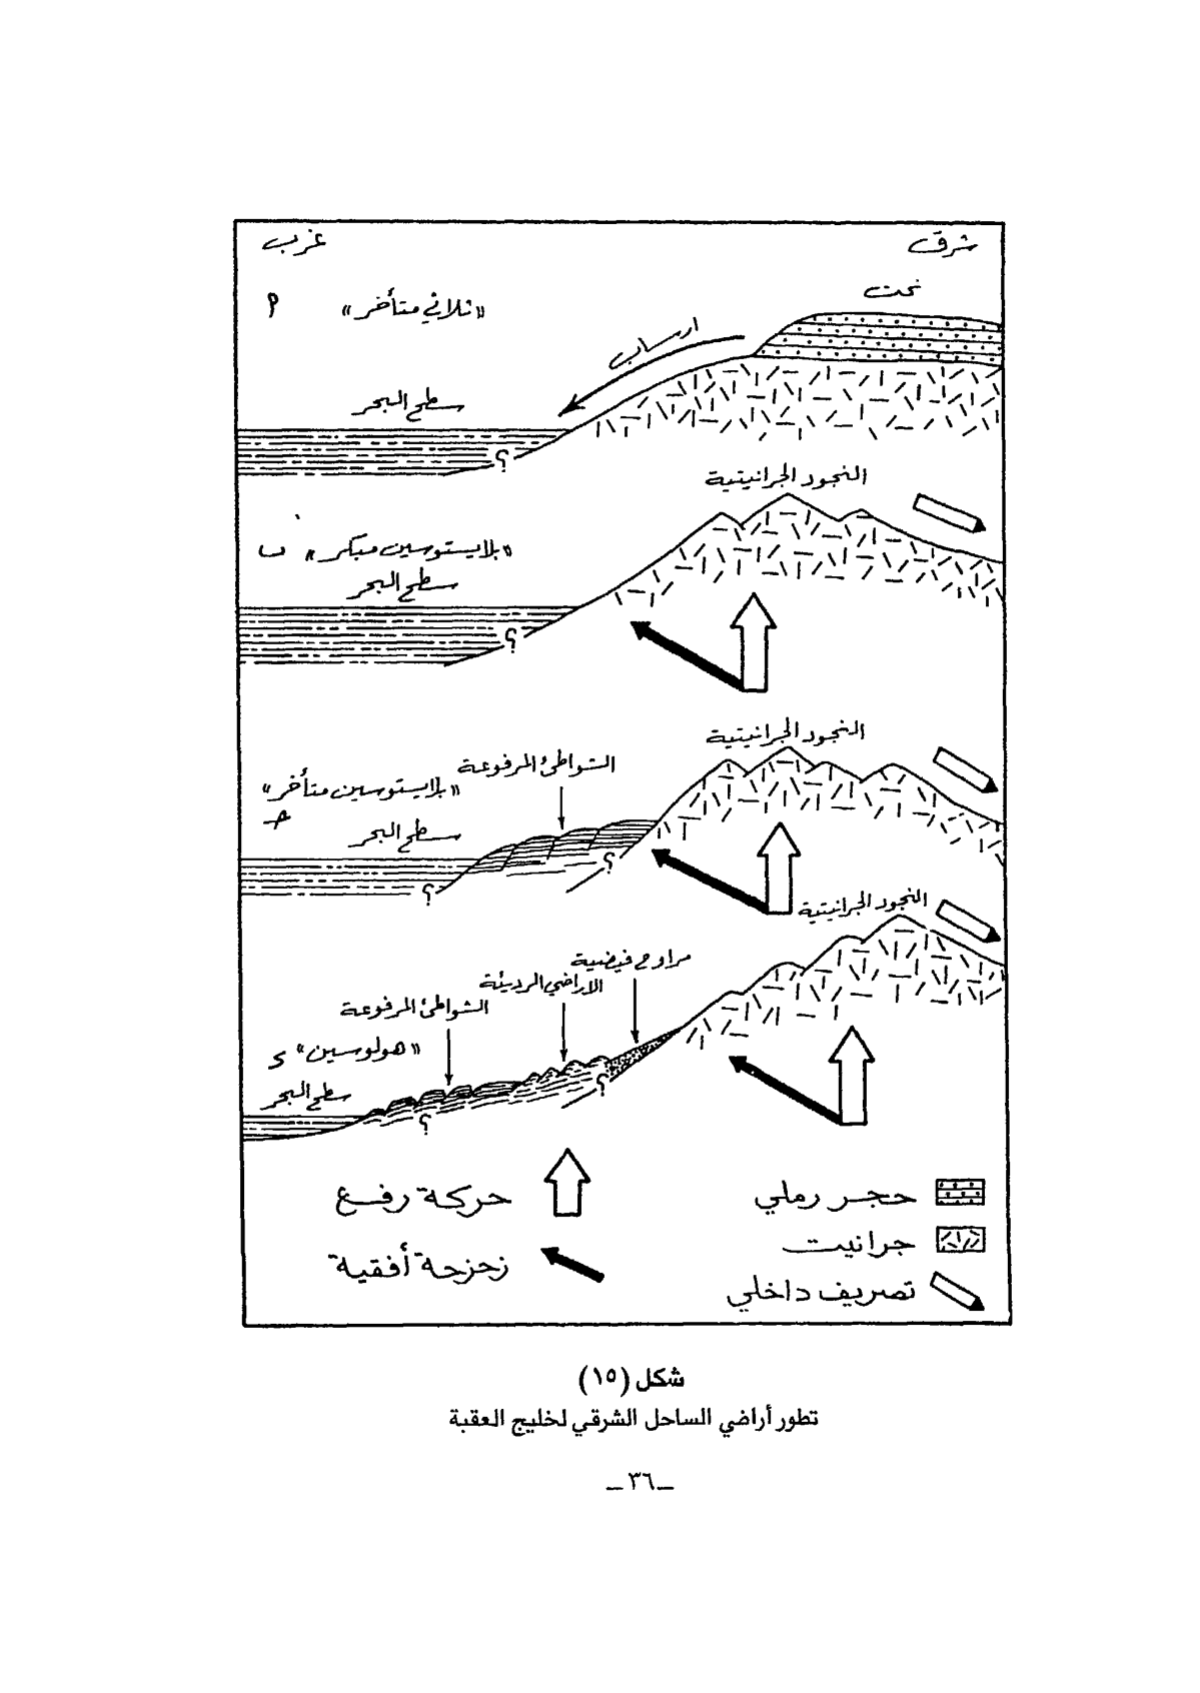 شرق
غرب
نحت
أ
«ثلاثي متأخر»
ارساب
سطح البحر
؟
النجود الجرانيتية
«بلايستوسين مبكر» ب
سطح البحر
؟
النجود الجرانيتية
الشواطئ المرفوعة
«بلايستوسين متأخر»
جـ
سطح البحر
؟
؟
النجود الجرانيتية
مراوح فيضية
الاراضي الرديئة
الشواطئ المرفوعة
«هولوسين» د
سطح البحر
؟
؟
حجر رملي
حركة رفع
جرانيت
زحزحة أفقية
تصريف داخلي
شكل (١٥)
تطور أراضي الساحل الشرقي لخليج العقبة
ــ ٣٦ ــ